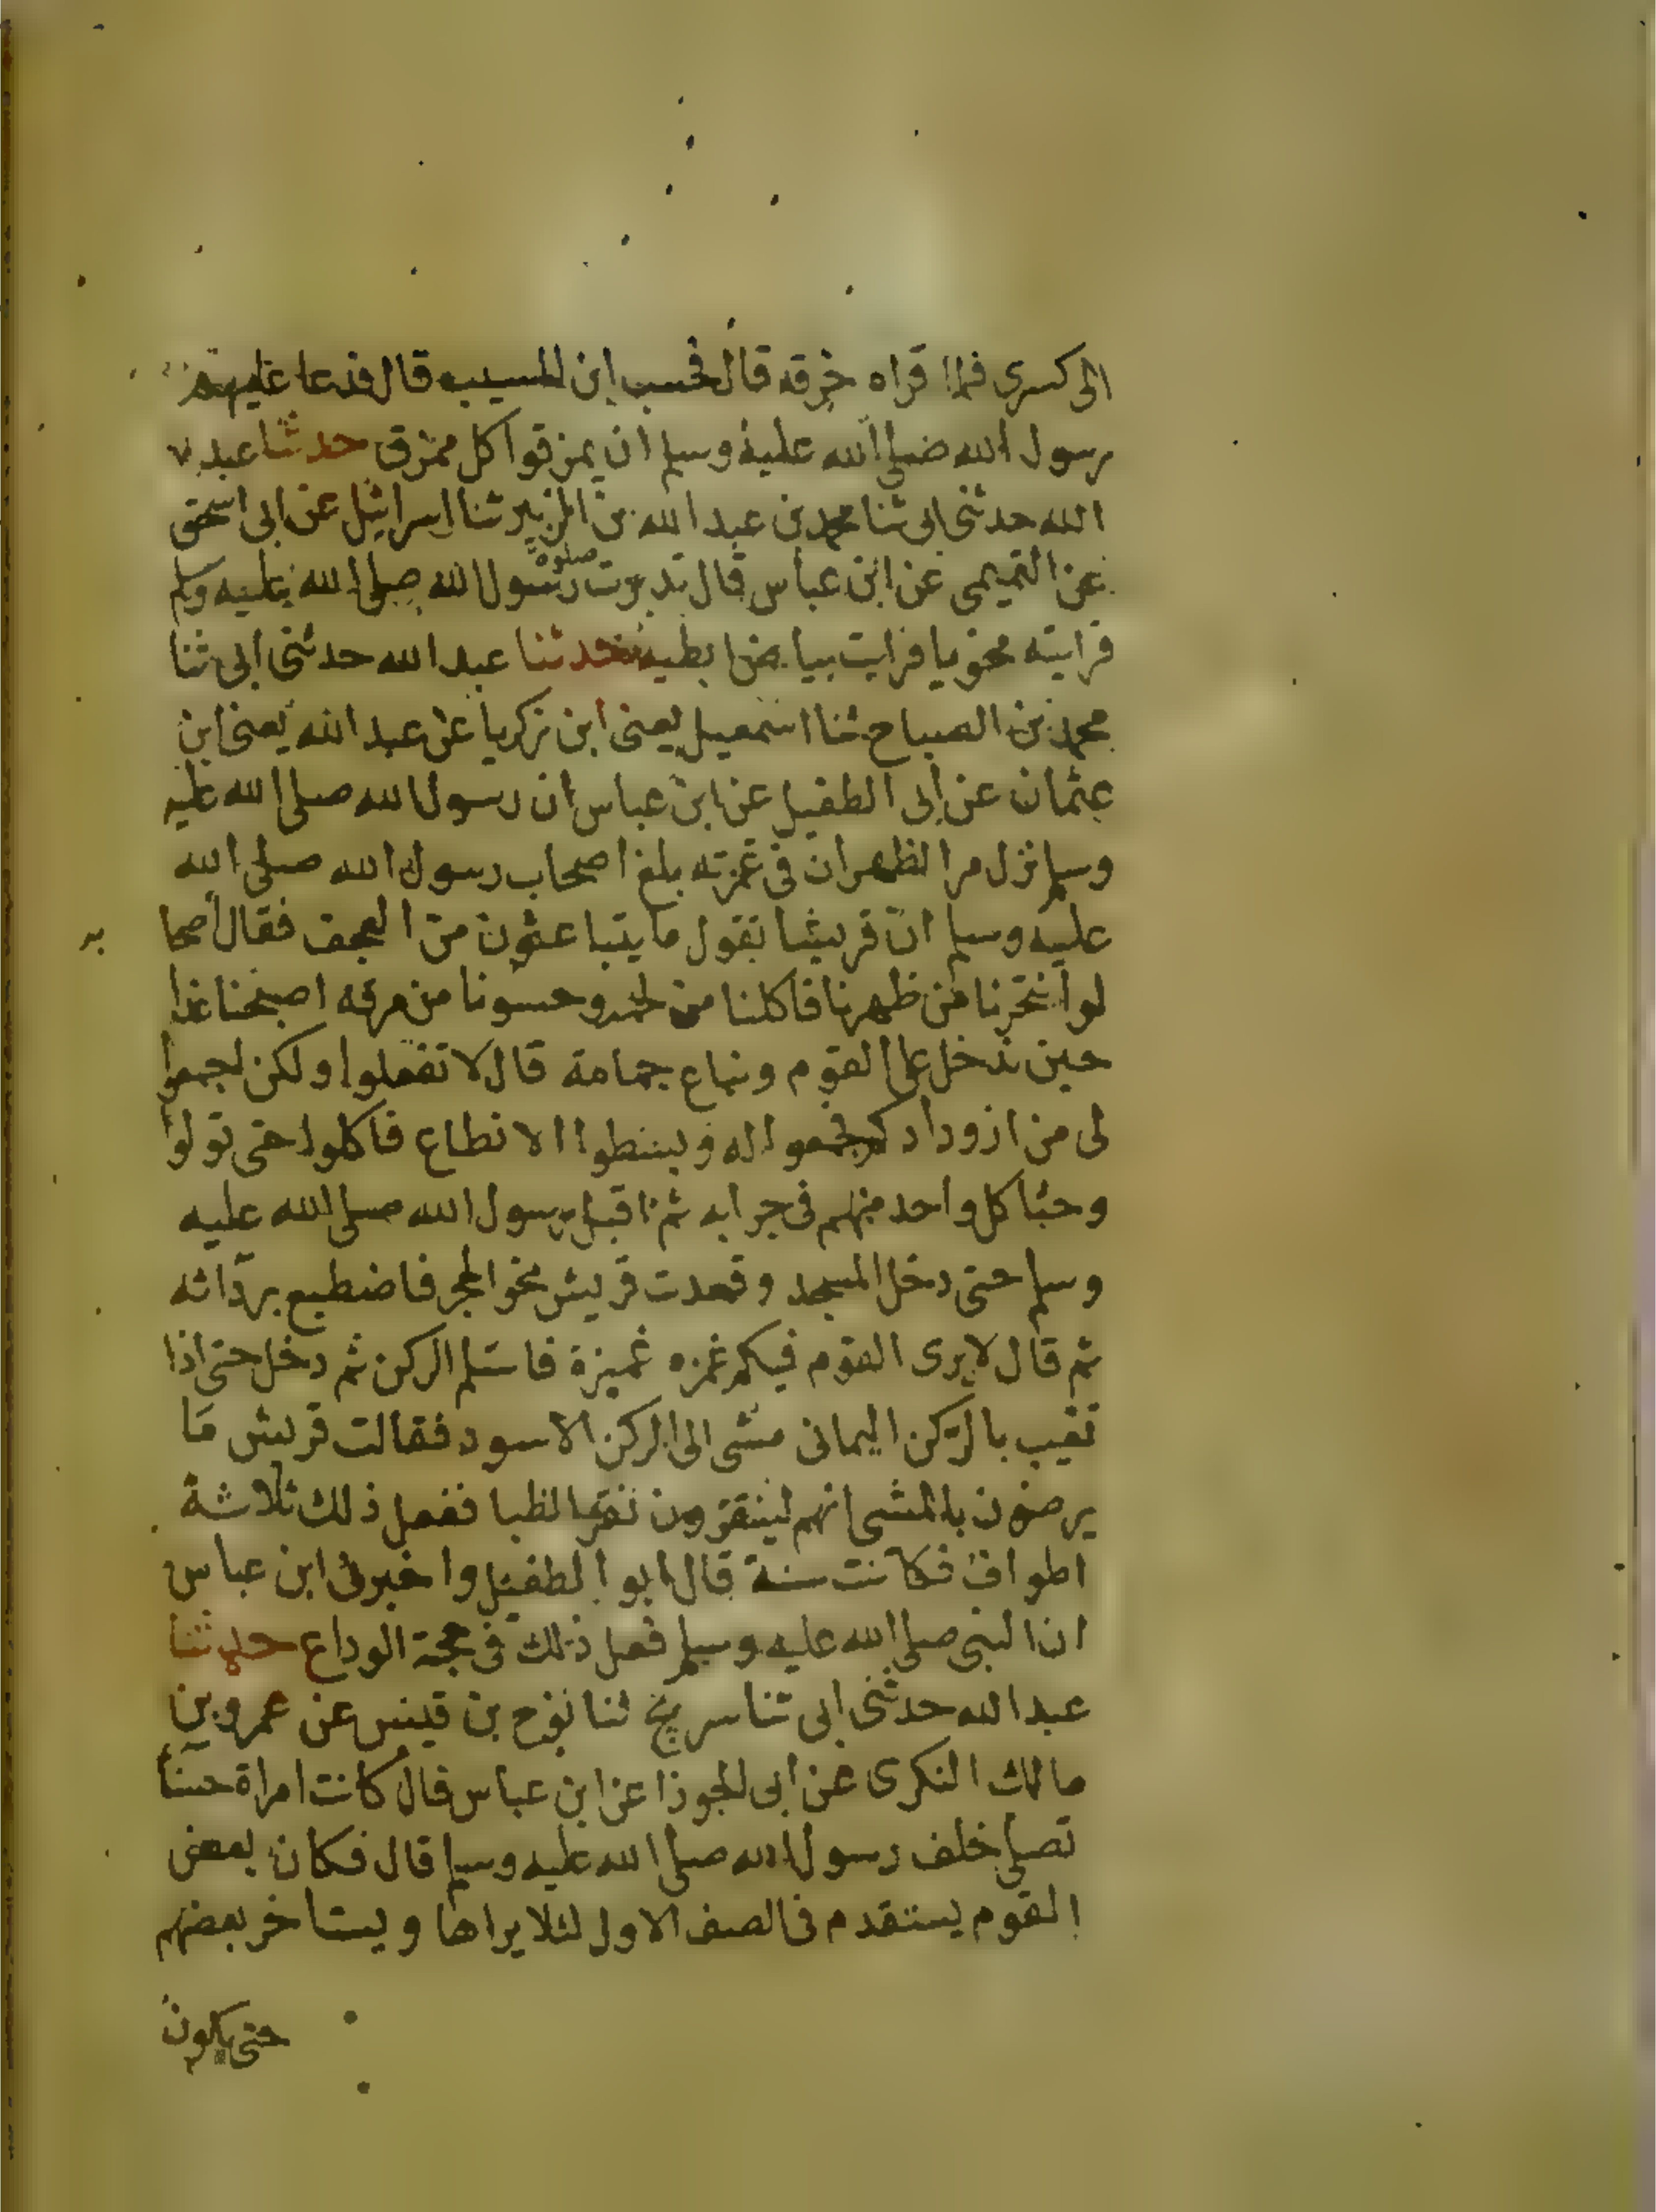 الى كسرى فلما قراه خرقه قال فحسب ابن المسيب قال فدعا عليهم
رسول الله صلى الله عليه وسلم ان يمزقوا كل ممزق حدثنا عبد
الله حدثني ابي ثنا محمد بن عبد الله بن الزبير ثنا اسرائيل عن ابى اسحق
عن التميمى عن ابن عباس قال تدبرت صلوة رسول الله صلى الله عليه وسلم
فرايته مخويا فرايت بياض ابطيه حدثنا عبد الله حدثنى ابى ثنا
محمد بن الصباح ثنا اسمعيل يعنى ابن زكريا عن عبد الله يعنى ابن
عثمان عن ابى الطفيل عن ابن عباس ان رسول الله صلى الله عليه
وسلم نزل مر الظهران فى عمرته بلغ اصحاب رسول الله صلى الله
عليه وسلم ان قريشا تقول ما يتباعثون من العجف فقال اصحا
به
لو انتحرنا من ظهرنا فاكلنا من لحمه وحسونا من مرقه اصبحنا غدا
حين ندخل على القوم وبناع جمامة قال لا تفعلوا ولكن اجمعوا
لى من ازوادكم فجمعوا له وبسطوا الانطاع فاكلوا حتى تولوا
وحثا كل واحد منهم فى جرابه ثم اقبل رسول الله صلى الله عليه
وسلم حتى دخل المسجد وقعدت قريش نحو الحجر فاضطبع بردائه
ثم قال لا يرى القوم فيكم غمزه غميزة فاستلم الركن ثم دخل حتى اذا
تغيب بالركن اليمانى مشى الى الركن الاسود فقالت قريش ما
يرضون بالمشى انهم لينقزون نقز الظبا ففعل ذلك ثلاثة
اطواف فكانت سنة قال ابو الطفيل واخبرنى ابن عباس
ان النبى صلى الله عليه وسلم فعل ذلك فى حجة الوداع حدثنا
عبد الله حدثنى ابى ثنا سريج ثنا نوح بن قيس عن عمرو بن
مالك النكرى عن ابى الجوذا عن ابن عباس قال كانت امراة حسنا
تصلى خلف رسول الله صلى الله عليه وسلم قال فكان بعض
القوم يستقدم فى الصف الاول لئلا يراها ويستاخر بعضهم
حتى يكون